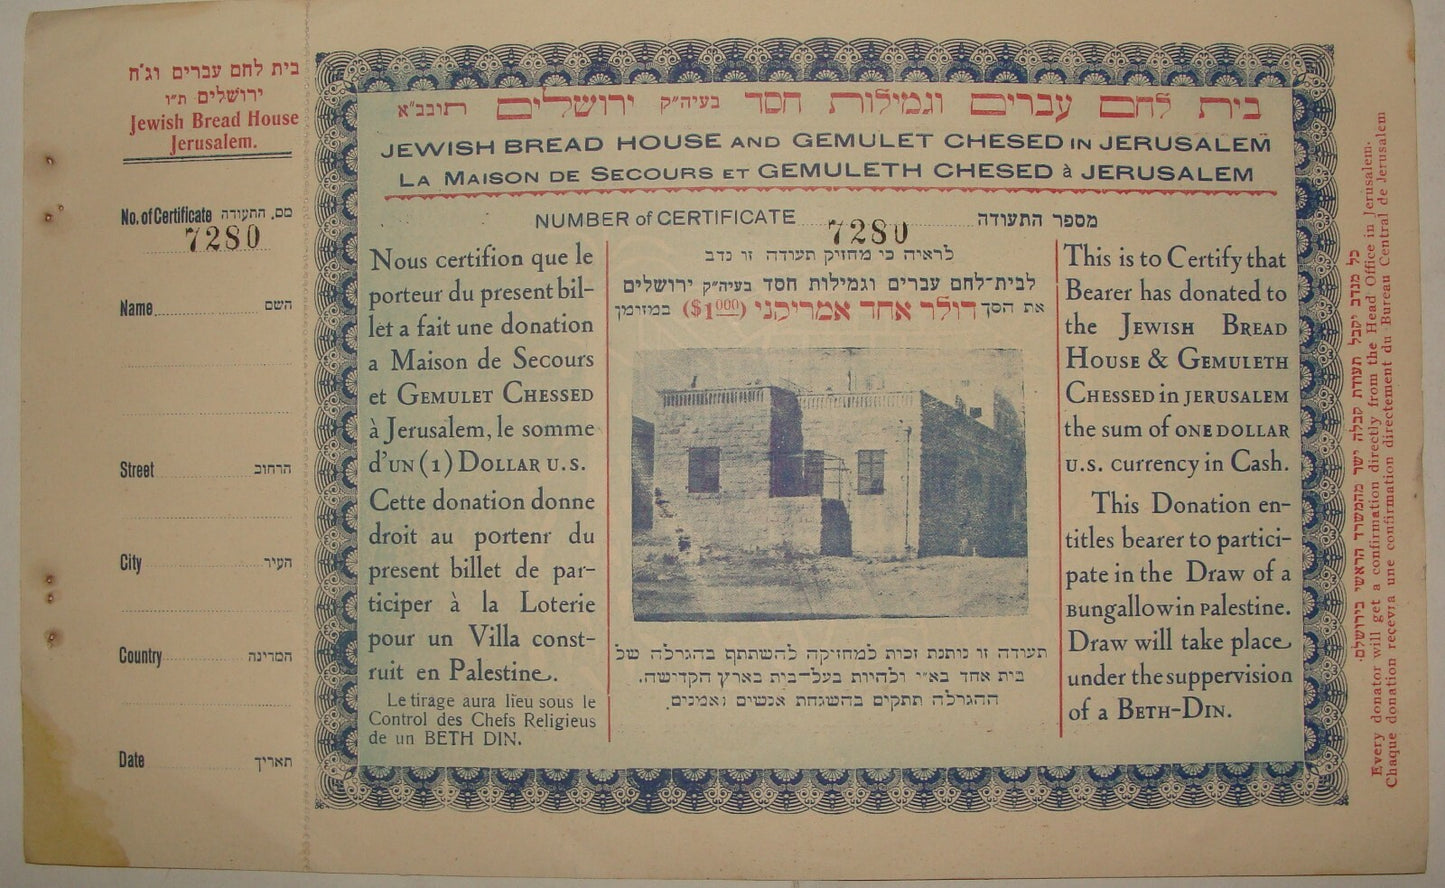 בית לחם עברים וג"ח
ירושלים ת"ו
Jewish Bread House
Jerusalem.
No. of Certificate מס. התעודה
7280
Name השם
Street הרחוב
City העיר
Country המדינה
Date תאריך
בית לחם עברים וגמילות חסד בעיה"ק ירושלים תובב"א
JEWISH BREAD HOUSE AND GEMULET CHESED IN JERUSALEM
LA MAISON DE SECOURS ET GEMULETH CHESED à JERUSALEM
NUMBER of CERTIFICATE 7280 מספר התעודה
Nous certifion que le
porteur du present bil-
let a fait une donation
a Maison de Secours
et GEMULET CHESSED
à Jerusalem, le somme
d'UN (1) DOLLAR U.S.
Cette donation donne
droit au portenr du
present billet de par-
ticiper à la Loterie
pour un Villa const-
ruit en Palestine.
Le tirage aura lieu sous le
Control des Chefs Religieus
de un BETH DIN.
לראיה כי מחזיק תעודה זו נדב
לבית-לחם עברים וגמילות חסד בעיה"ק ירושלים
את הסך דולר אחד אמריקני ($1000) במזומן
תעודה זו נותנת זכות למחזיקה להשתתף בהגרלה של
בית אחד בא"י ולהיות בעל-בית בארץ הקדושה.
ההגרלה תתקים בהשגחת אנשים נאמנים.
This is to Certify that
Bearer has donated to
the JEWISH BREAD
HOUSE & GEMULETH
CHESSED in JERUSALEM
the sum of ONE DOLLAR
U.S. currency in Cash.
This Donation en-
titles bearer to partici-
pate in the Draw of a
Bungallow in Palestine.
Draw will take place
under the suppervision
of a BETH-DIN.
כל מנדב יקבל תעודת קבלה ישר מהמשרד הראשי בירושלם.
Every donator will get a confirmation directly from the Head Office in Jerusalem.
Chaque donation recevra une confirmation directement du Bureau Central de Jerusalem